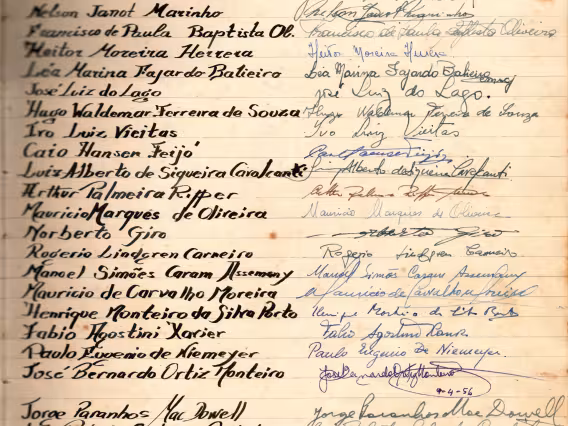 Nelson Janot Marinho
Francisco de Paula Baptista Ol. Francisco de Paula Baptista Oliveira
Heitor Moreira Herrera Heitor Moreira Herrera
Léa Marina Fajardo Batieiro Léa Marina Fajardo
José Luiz do Lago José Luiz do Lago.
Hugo Waldemar Ferreira de Souza Hugo Waldemar Ferreira de Souza
Ivo Luiz Vieitas Ivo Luiz Vieitas
Caio Hansen Feijó
Luiz Alberto de Siqueira Cavalcanti Luiz Alberto de Siqueira Cavalcanti
Arthur Palmeira Ripper
Mauricio Marques de Oliveira Mauricio Marques de Oliveira
Norberto Giro Norberto Giro
Rogerio Lindgren Carneiro Rogerio Lindgren Carneiro
Manoel Simões Caram Assemany Manoel Simões Caram Assemany
Mauricio de Carvalho Moreira Mauricio de Carvalho Moreira
Henrique Monteiro da Silva Porto
Fabio Agostini Xavier Fabio Agostini Xavier
Paulo Eugenio de Niemeyer Paulo Eugenio De Niemeyer
José Bernardo Ortiz Monteiro José Bernardo Ortiz Monteiro
9-4-56
Jorge Paranhos Mac Dowell Jorge Paranhos Mac Dowell